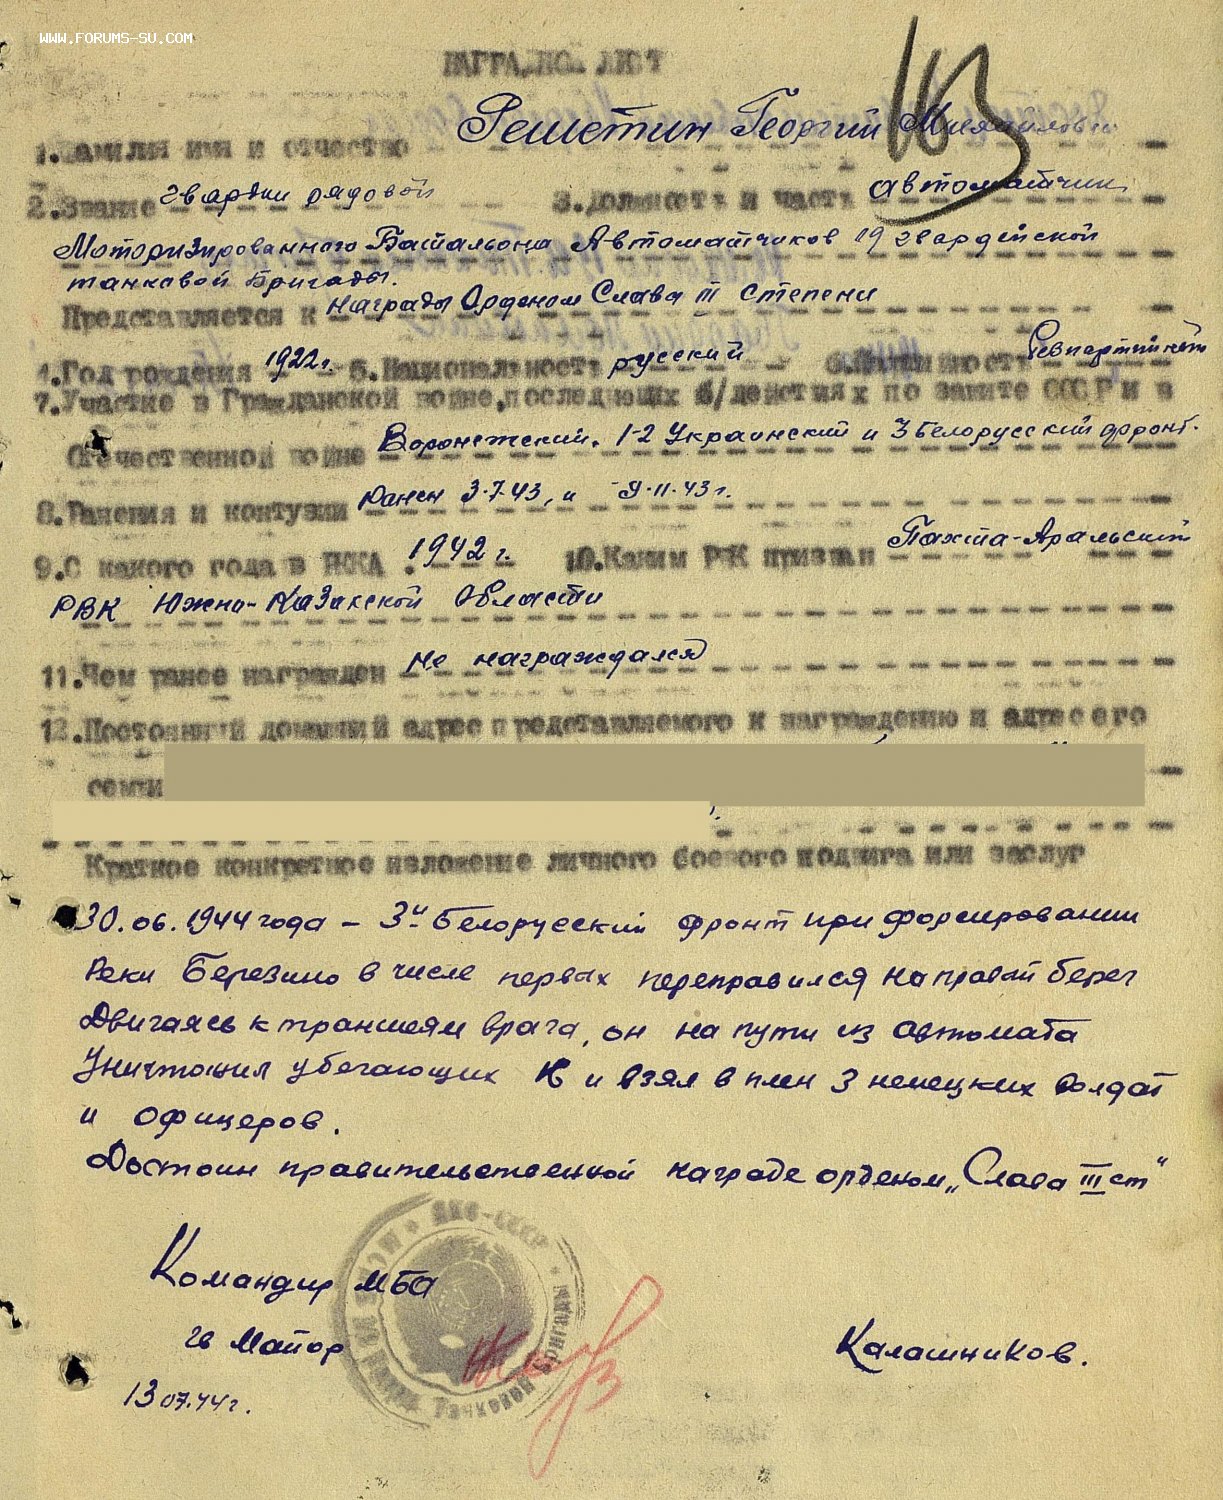 WWW.FORUMS-SU.COM
НАГРАДНОЙ ЛИСТ
113
1.Фамилия имя и отчество Решетин Георгий Михайлович
2.Звание гвардии рядовой 3.Должность и часть автоматчик
Моторизированного Батальона Автоматчиков 19 гвардейской
танковой Бригады.
Представляется к награды Орденом Слава III степени
4.Год рождения 1922г. 5.Национальность русский 6.Партийность Беспартийнет
7.Участие в Гражданской войне,последующих б/действиях по защите СССР и в
Отечественной войне Воронежский. 1-2 Украинский и 3 Белорусский фронт.
8.Ранения и контузии Ранен 3.7.43, и 9.11.43г.
9.С какого года в РККА 1942 г. 10.Каким РВК призван Пахта-Аральский
РВК Южно-Казакской Области
11.Чем ранее награжден Не награждался
12.Постоянный домашний адрес представляемого к награждению и адрес его
семьи
Краткое конкретное изложение личного боевого подвига или заслуг
30.06.1944 года – 3й Белорусский фронт при форсировании
Реки Березино в числе первых переправился на правый берег
Двигаясь к траншеям врага, он на пути из автомата
Уничтожил убегающих и взял в плен 3 немецких солдат
и офицеров.
Достоин правительственной награде орденом „Слава III ст"
Командир МБА
гв Майор Калашников.
13 07.44г.